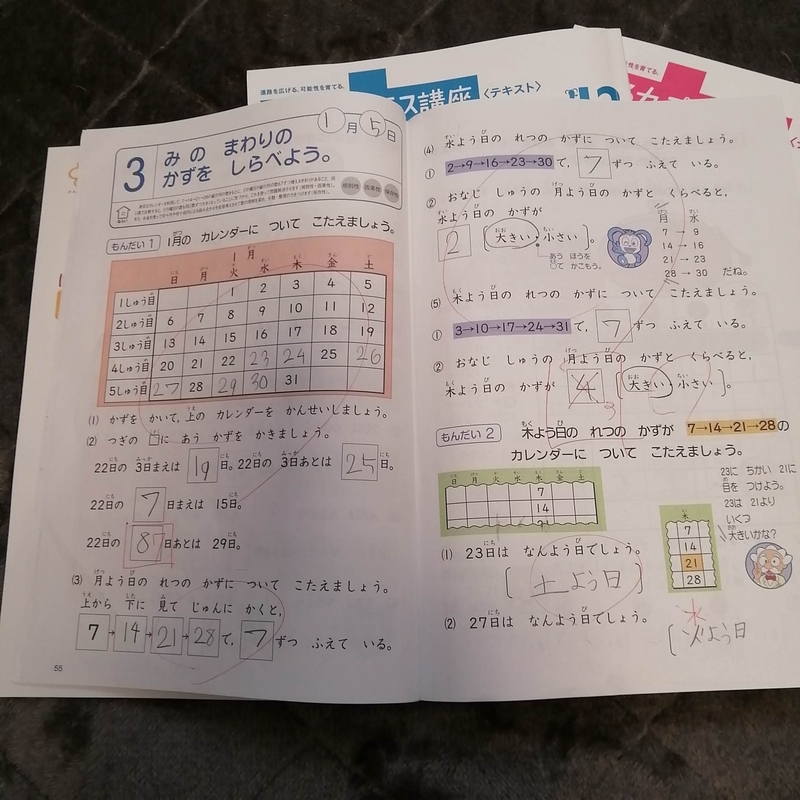 進路を広げる、可能性を育てる。
ス講座 〈テキスト〉
性を育てる。
1月5日
3 みの まわりの
かずを しらべよう。
もんだい1 1月の カレンダーに ついて こたえましょう。
1月
日 月 火 水 木 金 土
1しゅう目 1 2 3 4 5
2しゅう目 6 7 8 9 10 11 12
3しゅう目 13 14 15 16 17 18 19
4しゅう目 20 21 22 23 24 25 26
5しゅう目 27 28 29 30 31
(1) かずを かいて、上の カレンダーを かんせいしましょう。
(2) つぎの □に あう かずを かきましょう。
22日の 3日まえは 19日。22日の 3日あとは 25日。
22日の 7日まえは 15日。
22日の 87日あとは 29日。
(3) 月よう日の れつの かずに ついて こたえましょう。
上から 下に 見て じゅんに かくと、
7→14→21→28で、7ずつ ふえて いる。
55
(4) 水よう日の れつの かずに ついて こたえましょう。
① 2→9→16→23→30で、7ずつ ふえて いる。
② おなじ しゅうの 月よう日の かずと くらべると、
水よう日の かずが
2〔大きい・小さい〕。
あう ほうを
○で かこもう。
月 水
7 → 9
14 → 16
21 → 23
28 → 30 だね。
(5) 木よう日の れつの かずに ついて こたえましょう。
① 3→10→17→24→31で、7ずつ ふえて いる。
② おなじ しゅうの 月よう日の かずと くらべると、
木よう日の かずが 4 3〔大きい・小さい〕。
もんだい2 木よう日の れつの かずが 7→14→21→28の
カレンダーに ついて こたえましょう。
日 月 火 水 木 金 土
7
14
21
木
7
14
21
28
23に ちかい 21に
目を つけよう。
23は 21より
いくつ
大きいかな?
(1) 23日は なんよう日でしょう。
〔土よう日〕
(2) 27日は なんよう日でしょう。
水
〔火よう日